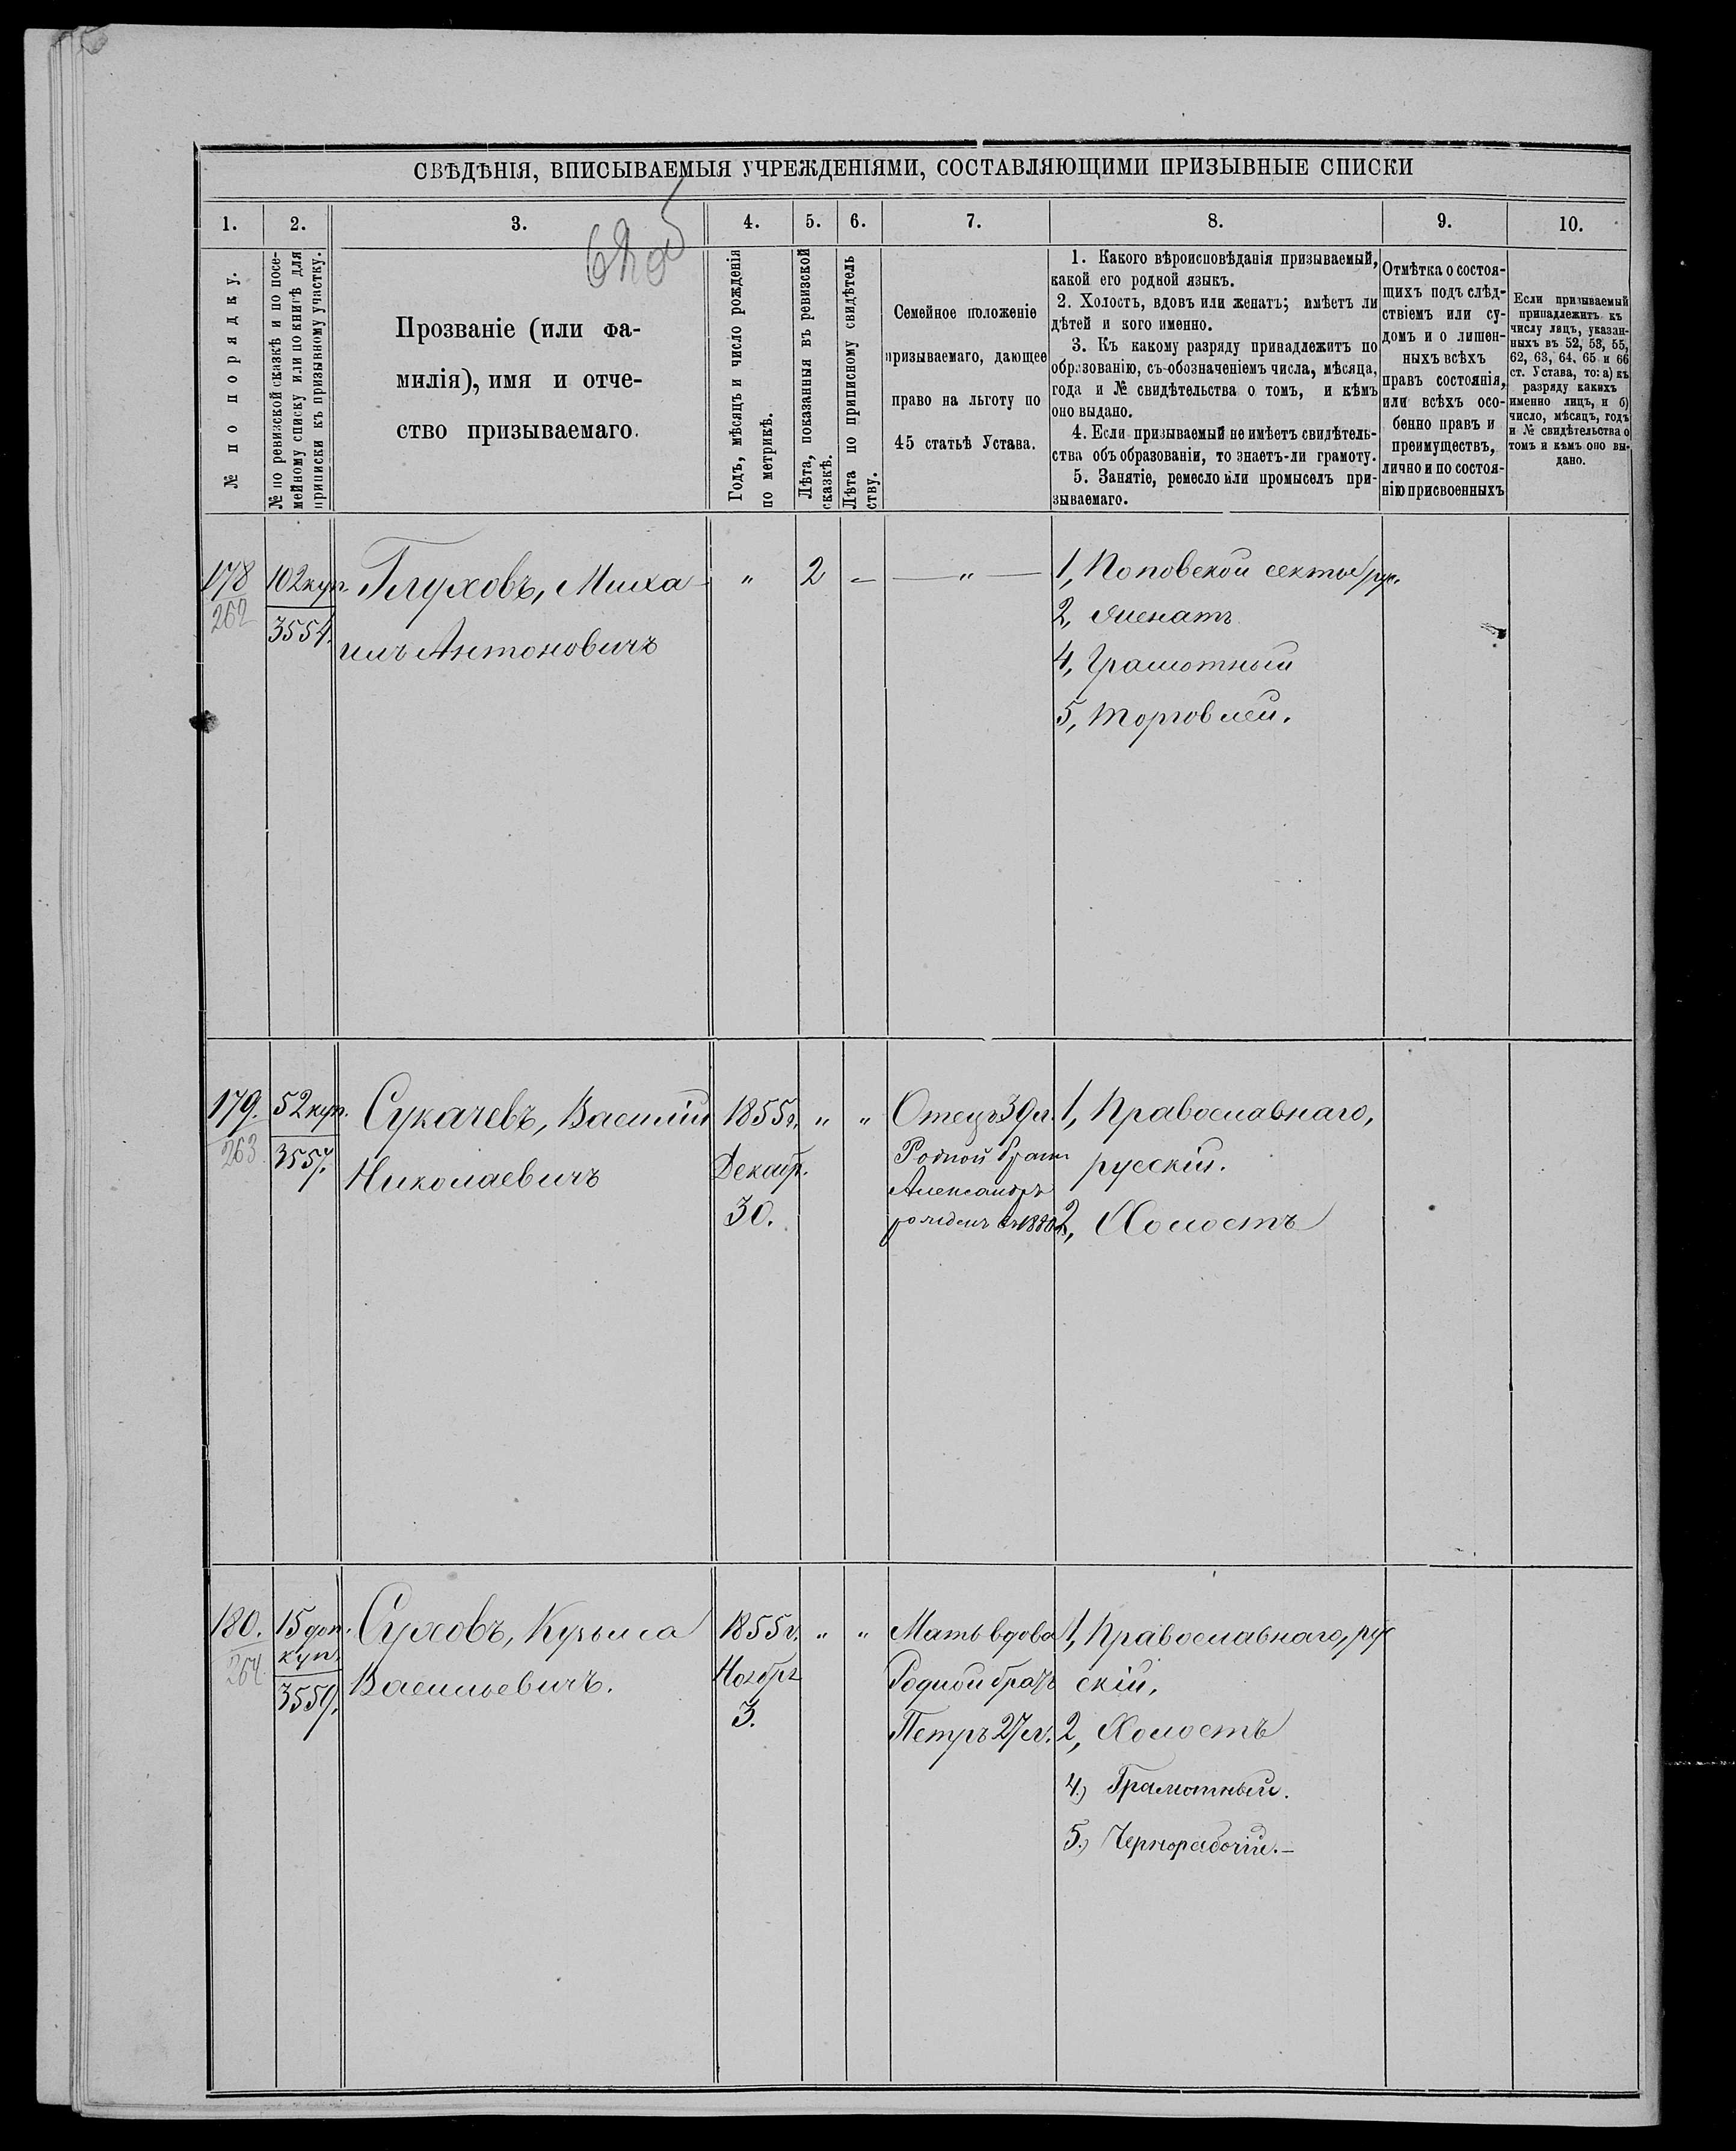 СВѢДѢНІЯ, ВПИСЫВАЕМЫЯ УЧРЕЖДЕНІЯМИ, СОСТАВЛЯЮЩИМИ ПРИЗЫВНЫЕ СПИСКИ
1.
2.
3.
4.
5.
6.
7.
8.
9.
10.
№ по порядку.
№ по ревизской сказкѣ и по посе-
мейному списку или по книгѣ для
приписки къ призывному участку.
Прозваніе (или фа-
милія), имя и отче-
ство призываемаго.
Годъ, мѣсяцъ и число рожденія
по метрикѣ.
Лѣта, показанныя въ ревизской
сказкѣ.
Лѣта по приписному свидѣтель
ству.
Семейное положеніе
призываемаго, дающее
право на льготу по
45 статьѣ Устава.
1. Какого вѣроисповѣданія призываемый,
какой его родной языкъ.
2. Холостъ, вдовъ или женатъ; имѣетъ ли
дѣтей и кого именно.
3. Къ какому разряду принадлежитъ по
образованію, съ-обозначеніемъ числа, мѣсяца,
года и № свидѣтельства о томъ, и кѣмъ
оно выдано.
4. Если призываемый не имѣетъ свидѣтель-
ства объ образованіи, то знаетъ-ли грамоту.
5. Занятіе, ремесло или промыселъ при-
зываемаго.
Отмѣтка о состоя-
щихъ подъ слѣд-
ствіемъ или су-
домъ и о лишен-
ныхъ всѣхъ
правъ состоянія,
или всѣхъ осо-
бенно правъ и
преимуществъ,
лично и по состоя-
нію присвоенныхъ
Если призываемый
принадлежитъ къ
числу лицъ, указан-
ныхъ въ 52, 53, 55,
62, 63, 64, 65 и 66
ст. Устава, то: а) къ
разряду какихъ
именно лицъ, и б)
число, мѣсяцъ, годъ
и № свидѣтельства о
томъ и кѣмъ оно вы-
дано.
178
262
102 куп.
3554.
Глуховъ, Миха-
илъ Антоновичъ
"
2
-
— " —
1, Поповской секты, рус.
2, Женатъ
4, Грамотный
5, Торговлей.
179.
263.
52 куп.
3557.
Сукачевъ, Василій
Николаевичъ
1855 г.
Декабр.
30.
"
"
Отецъ 39 л.
Родной братъ
Александръ
рожденъ въ 1880
1, Православнаго,
русскій.
2, Холостъ
180.
264.
15 доп.
куп.
3559.
Суховъ, Кузьма
Васильевичъ.
1855 г.
Ноября
3.
"
"
Мать вдова
Родной братъ
Петръ 27 л.
1, Православнаго, рус
скій,
2, Холостъ
4.) Грамотный.
5.) Чернорабочій.-